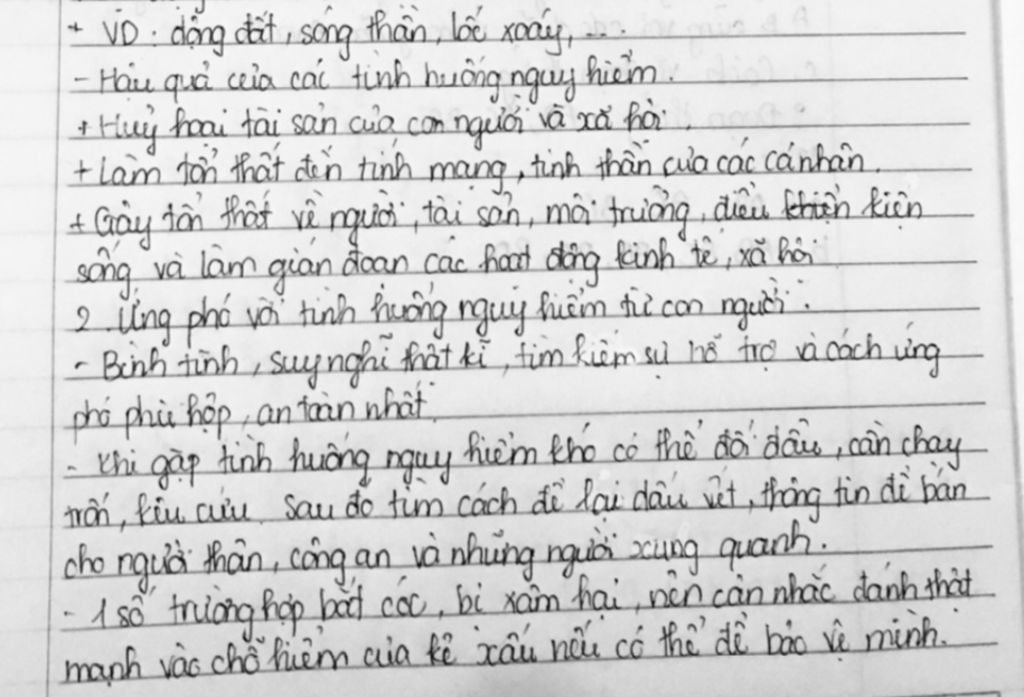 + VD: động đất, sóng thần, lốc xoáy,...
- Hậu quả của các tình huống nguy hiểm.
+ Huỷ hoại tài sản của con người và xã hội.
+ Làm tổn thất đến tính mạng, tinh thần của các cá nhân.
+ Gây tổn thất về người, tài sản, môi trường, điều khiện kiện
sống và làm gián đoạn các hoạt động kinh tế, xã hội
2. Ứng phó với tình huống nguy hiểm từ con người.
- Bình tĩnh, suy nghĩ thật kĩ, tìm kiếm sự hỗ trợ và cách ứng
phó phù hợp, an toàn nhất.
- Khi gặp tình huống nguy hiểm khó có thể đối đầu, cần chạy
trốn, kêu cứu. Sau đó tìm cách để lại dấu vết, thông tin để bán
cho người thân, công an và những người xung quanh.
- 1 số trường hợp bắt cóc, bị xâm hại, nên cân nhắc đánh thật
mạnh vào chỗ hiểm của kẻ xấu nếu có thể để bảo vệ mình.